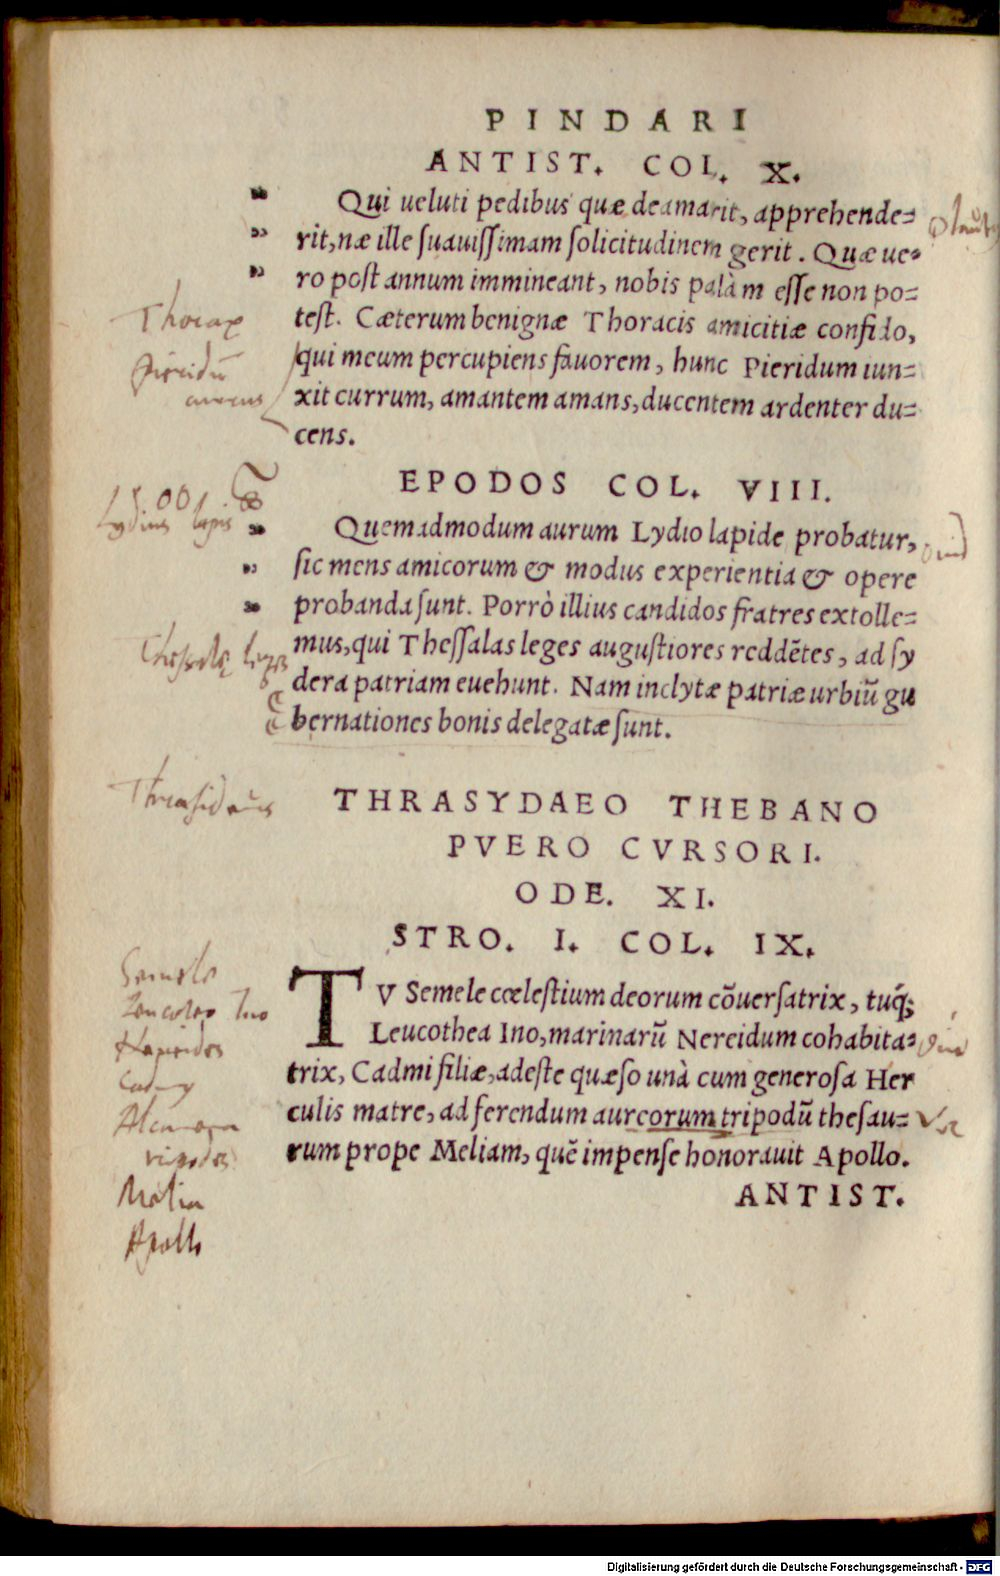 PINDARI
ANTIST. COL. X.
Qui ueluti pedibus quæ deamarit, apprehende=
rit, næ ille suauissimam solicitudinem gerit. Quæ ue=
ro post annum immineant, nobis palàm esse non po=
Thorax
test. Cæterum benignæ Thoracis amicitiæ confido,
Pieridũ
qui meum percupiens fauorem, hunc Pieridum iun=
currus
xit currum, amantem amans, ducentem ardenter du=
cens.
EPODOS COL. VIII.
Lydius lapis
Quemadmodum aurum Lydio lapide probatur,
sic mens amicorum & modus experientia & opere
probanda sunt. Porrò illius candidos fratres extolle=
mus, qui Thessalas leges augustiores reddẽtes, ad sy
Thessalę leges
dera patriam euehunt. Nam inclytæ patriæ urbiũ gu
bernationes bonis delegatæ sunt.
Thrasidæus
THRASYDAEO THEBANO
PVERO CVRSORI.
ODE. XI.
STRO. I. COL. IX.
Semele
TV Semele cœlestium deorum cõuersatrix, tuq́;
Leucotea Ino
Leucothea Ino, marinarũ Nereidum cohabita=
Nereides
trix, Cadmi filiæ, adeste quæso unà cum generosa Her
Cadmus
culis matre, ad ferendum aureorum tripodũ thesau=
Alcmena
rum prope Meliam, quẽ impense honorauit Apollo.
tripodes
ANTIST.
Melia
Apollo
Digitalisierung gefördert durch die Deutsche Forschungsgemeinschaft - DFG